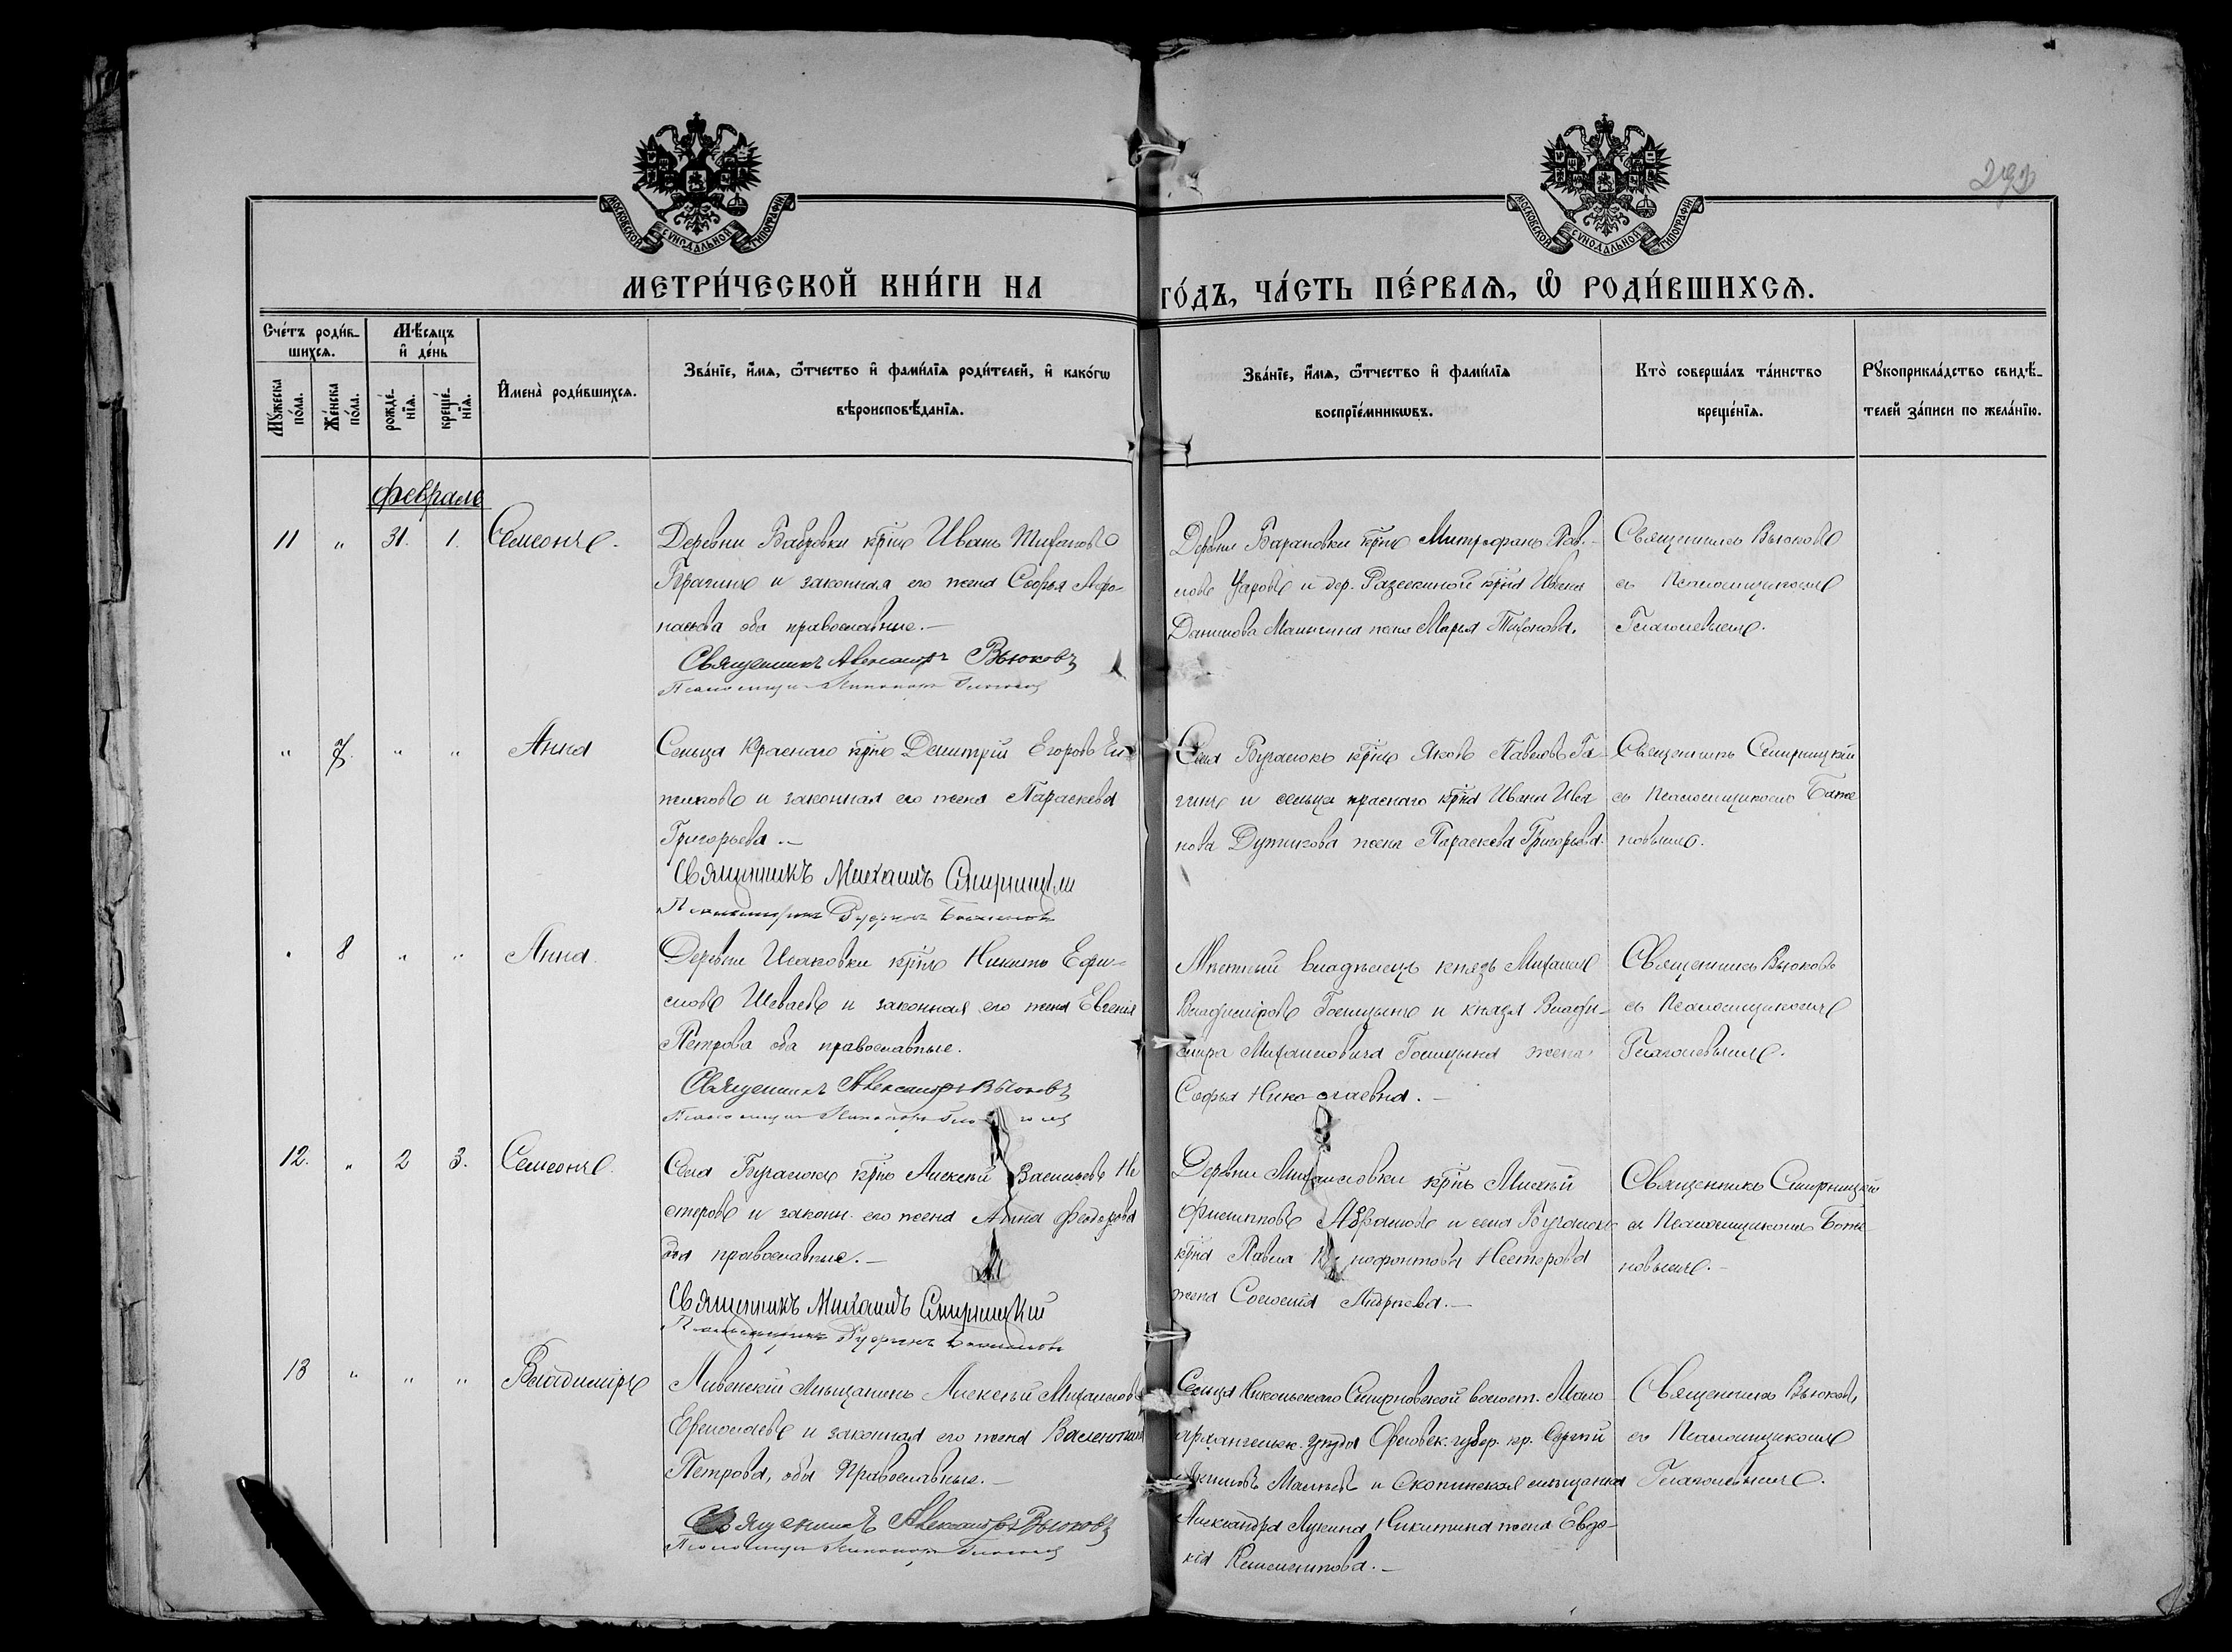 МОСКОВСКОЙ СУНОДАЛЬНОЙ ТИПОГРАФІИ
МОСКОВСКОЙ СУНОДАЛЬНОЙ ТИПОГРАФІИ
293
МЕТРИ́ЧЕСКОЙ КНИ́ГИ НА
ГО́ДЪ, ЧА́СТЬ ПЕ́РВАѦ, Ѡ РОДИ́ВШИХСѦ.
Сче́тъ роди́в-
шихсѧ.
Мѣ́сѧцъ
и҆ де́нь
Мꙋ́жеска
по́ла.
Же́нска
по́ла.
рожде́-
нїѧ.
креще́-
нїѧ.
И҆мена̀ роди́вшихсѧ.
Зва́нїе, и҆́мѧ, ѻ҆́тчество и҆ фами́лїѧ роди́телей, и҆ како́гѡ
вѣроисповѣ́данїѧ.
Зва́нїе, и҆́мѧ, ѻ҆́тчество и҆ фами́лїѧ
воспрїе́мникѡвъ.
Кто̀ соверша́лъ та́инство
креще́нїѧ.
Рꙋкоприкла́дство свидѣ́-
телей за́писи по жела́нїю.
Февраль
11 " 31. 1. Симеонъ.
Деревни Бобровки крнъ Иванъ Тихоновъ
Брагинъ и законная его жена Софья Афо-
насьева оба православные.—
Священникъ Александръ Вьюковъ
Псаломщикъ
Деревни Барановки крнъ Митрофанъ Пав-
ловъ Уаровъ и дер. крна Ивана
Данилова жена Марья Тихонова.
Священникъ Вьюковъ
съ Псаломщикомъ
Глаголевымъ.
" 7. " " Анна
Сельца Краснаго крнъ Димитрій Егоровъ
и законная его жена Параскева
Григорьева.—
Священникъ Михаилъ Смирницкій
Псаломщикъ
Села Бугалокъ крнъ Яковъ Павловъ Га-
гинъ и сельца краснаго крна Ивана Ива
нова Дутикова жена Параскева Григорьева.
Священникъ Смирницкій
съ Псаломщикомъ Баже
новымъ.
" 8 " " Анна.
Деревни Исаковки крнъ Никита Ефи-
мовъ Шеваевъ и законная его жена Евгенія
Петрова оба православные.
Священникъ Александръ Вьюковъ
Псаломщикъ
Мѣстный владѣлецъ князь Михаилъ
Владиміровъ Голицынъ и князя Влади-
мира Михаиловича Голицына жена
Софья Николаевна.—
Священникъ Вьюковъ
съ Псаломщикомъ
Глаголевымъ.
12. " 2 3. Симеонъ.
Села Бугалокъ крнъ Алексѣй Васильевъ Не
стеровъ и законн. его жена Анна Феодорова
оба православные.—
Священникъ Михаилъ Смирницкій
Псаломщикъ
Деревни Михаиловки крнъ
Филипповъ Абрамовъ и села Бугалокъ
крна Павла Нестерова
жена Андреева.—
Священникъ Смирницкій
съ Псаломщикомъ Баже
новымъ.—
13 " " " Владиміръ
Ливенскій Мѣщанинъ Алексѣй Михаиловъ
Ермолаевъ и законная его жена Валентина
Петрова, оба Православные.—
Священникъ Александръ Вьюковъ
Псаломщикъ
Сельца Никольскаго Смирновской волост. Мало
архангельск. уѣзда Орловск. губер. кр. Сергѣй
и Скопинская мѣщанка
Александра Лукина Никитина жена Евдо-
кія Климентова.—
Священникъ Вьюковъ
съ Псаломщикомъ
Глаголевымъ.